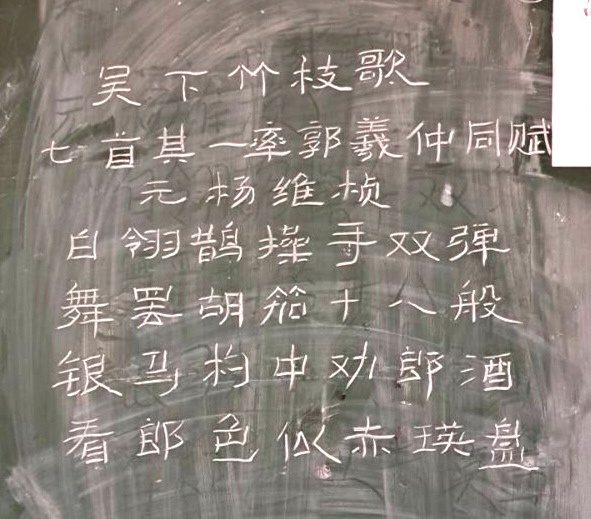 吴下竹枝歌
七首其一率郭羲仲同赋
元杨维桢
白翎鹊操手双弹
舞罢胡笳十八般
银马杓中劝郎酒
看郎色似赤瑛盘